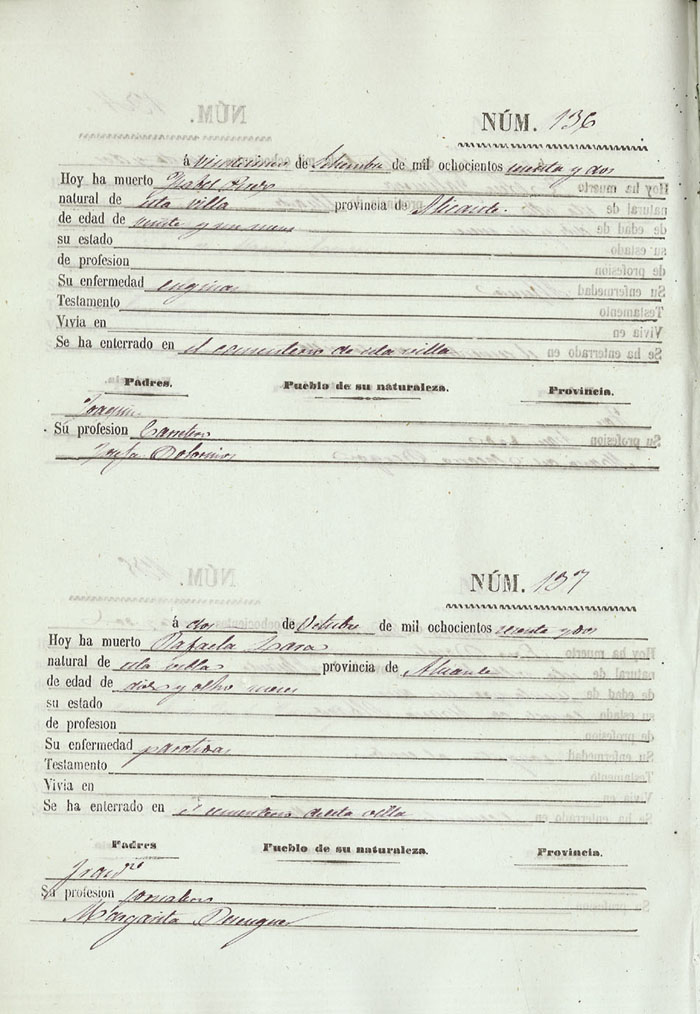 NÚM. 136
á de Setiembre de mil ochocientos sesenta y dos
Hoy ha muerto Isabel
natural de esta villa provincia de Alicante.
de edad de veinte y un meses
su estado
de profesion
Su enfermedad anginas
Testamento
Vivia en
Se ha enterrado en el cementerio de esta villa
Padres. Pueblo de su naturaleza. Provincia.
Joaquin
Su profesion
Josefa
NÚM. 137
á dos de Octubre de mil ochocientos sesenta y dos
Hoy ha muerto Rafaela
natural de esta villa provincia de Alicante
de edad de diez y ocho meses
su estado
de profesion
Su enfermedad parotidas
Testamento
Vivia en
Se ha enterrado en cementerio de esta villa
Padres Pueblo de su naturaleza. Provincia.
Franco
Su profesion jornalero
Margarita